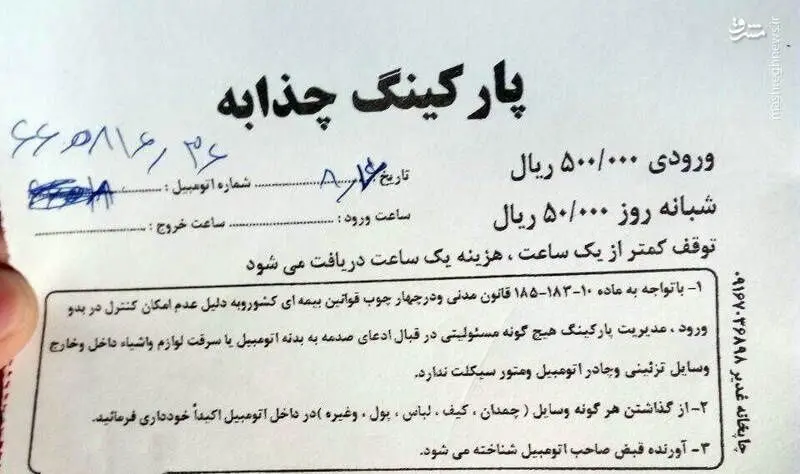 مشرق
mashreghnews.ir
پارکینگ چذابه
ورودی ۵۰۰/۰۰۰ ریال
شبانه روز ۵۰/۰۰۰ ریال
تاریخ : ........ شماره اتومبیل : ........
ساعت ورود : ........ ساعت خروج : ........
توقف کمتر از یک ساعت ، هزینه یک ساعت دریافت می شود
۱- باتواجه به ماده ۱۰-۱۸۳-۱۸۵ قانون مدنی ودرچهار چوب قوانین بیمه ای کشوروبه دلیل عدم امکان کنترل در بدو
ورود ، مدیریت پارکینگ هیچ گونه مسئولیتی در قبال ادعای صدمه به بدنه اتومبیل یا سرقت لوازم واشیاء داخل وخارج
وسایل تزئینی وچادر اتومبیل ومتور سیکلت ندارد.
۲- از گذاشتن هر گونه وسایل ( چمدان ، کیف ، لباس ، پول ، وغیره )در داخل اتومبیل اکیداً خودداری فرمائید.
۳- آورنده قبض صاحب اتومبیل شناخته می شود.
چاپخانه غدیر ۰۹۱۶۷۰۳۶۸۹۸